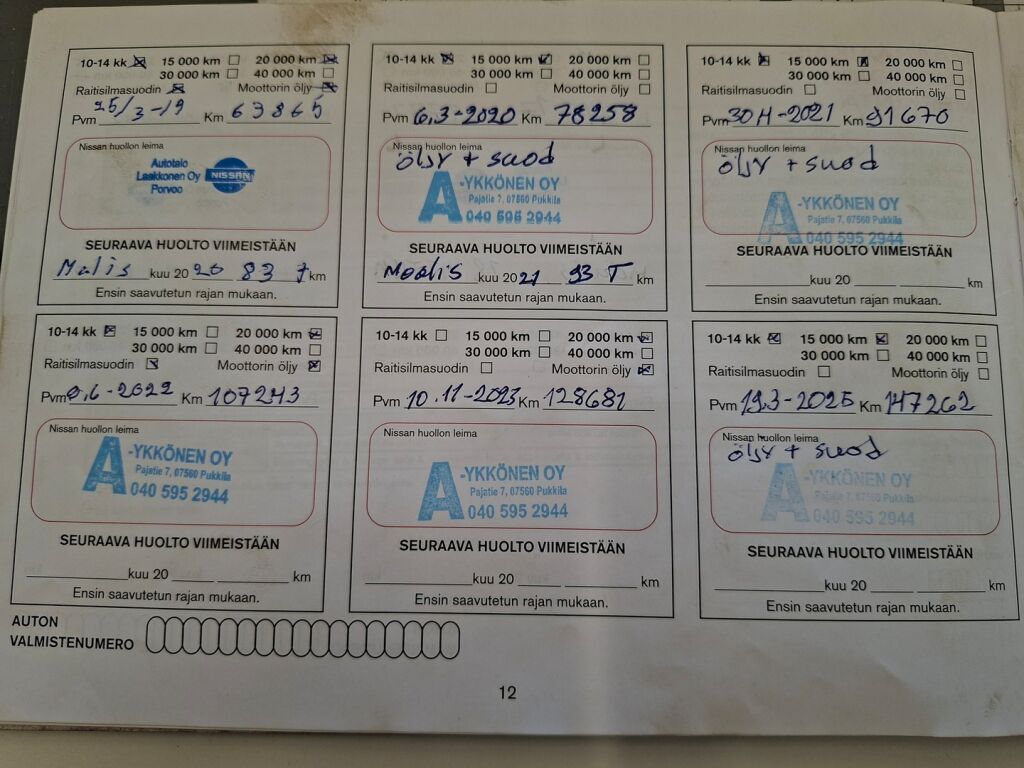 10-14 kk 15 000 km 20 000 km
30 000 km 40 000 km
Raitisilmasuodin Moottorin öljy
Pvm 25/3-19 Km 63865
Nissan huollon leima
Autotalo
Laakkonen Oy
Porvoo
NISSAN
SEURAAVA HUOLTO VIIMEISTÄÄN
kuu 2020 83 km
Ensin saavutetun rajan mukaan.
10-14 kk 15 000 km 20 000 km
30 000 km 40 000 km
Raitisilmasuodin Moottorin öljy
Pvm 6,3-2020 Km 78258
Nissan huollon leima
öljy + suod
A-YKKÖNEN OY
Pajatie 7, 07560 Pukkila
040 595 2944
SEURAAVA HUOLTO VIIMEISTÄÄN
Maalis kuu 2021 93 T km
Ensin saavutetun rajan mukaan.
10-14 kk 15 000 km 20 000 km
30 000 km 40 000 km
Raitisilmasuodin Moottorin öljy
Pvm -2021 Km 91670
Nissan huollon leima
öljy + suod
A-YKKÖNEN OY
Pajatie 7, 07560 Pukkila
040 595 2944
SEURAAVA HUOLTO VIIMEISTÄÄN
kuu 20 km
Ensin saavutetun rajan mukaan.
10-14 kk 15 000 km 20 000 km
30 000 km 40 000 km
Raitisilmasuodin Moottorin öljy
Pvm -2022 Km 107243
Nissan huollon leima
A-YKKÖNEN OY
Pajatie 7, 07560 Pukkila
040 595 2944
SEURAAVA HUOLTO VIIMEISTÄÄN
kuu 20 km
Ensin saavutetun rajan mukaan.
10-14 kk 15 000 km 20 000 km
30 000 km 40 000 km
Raitisilmasuodin Moottorin öljy
Pvm 10.11-2023 Km 128681
Nissan huollon leima
A-YKKÖNEN OY
Pajatie 7, 07560 Pukkila
040 595 2944
SEURAAVA HUOLTO VIIMEISTÄÄN
kuu 20 km
Ensin saavutetun rajan mukaan.
10-14 kk 15 000 km 20 000 km
30 000 km 40 000 km
Raitisilmasuodin Moottorin öljy
Pvm 19.3-2025 Km 147262
Nissan huollon leima
öljy + suod
A-YKKÖNEN OY
Pajatie 7, 07560 Pukkila
040 595 2944
SEURAAVA HUOLTO VIIMEISTÄÄN
kuu 20 km
Ensin saavutetun rajan mukaan.
AUTON
VALMISTENUMERO
12